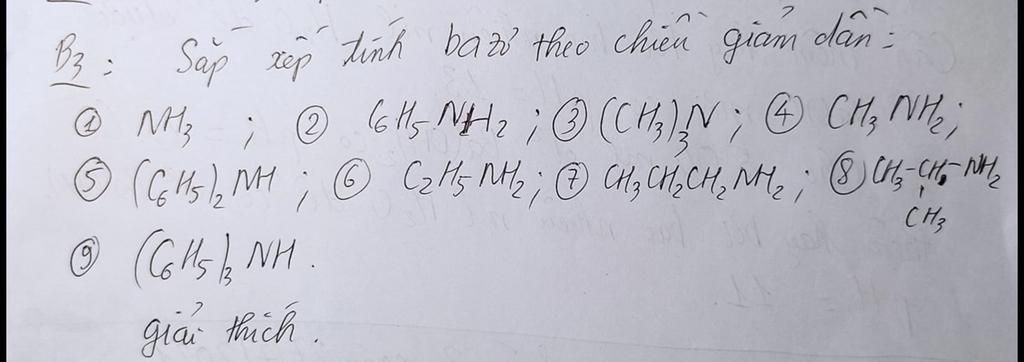 B3: Sắp xếp tính bazơ theo chiều giảm dần:
① NH3 ; ② C6H5NH2 ; ③ (CH3)3N ; ④ CH3NH2;
⑤ (C6H5)2NH ; ⑥ C2H5NH2; ⑦ CH3CH2CH2NH2 ; ⑧ CH3-CH-NH2
CH3
⑨ (C6H5)3NH.
giải thích.